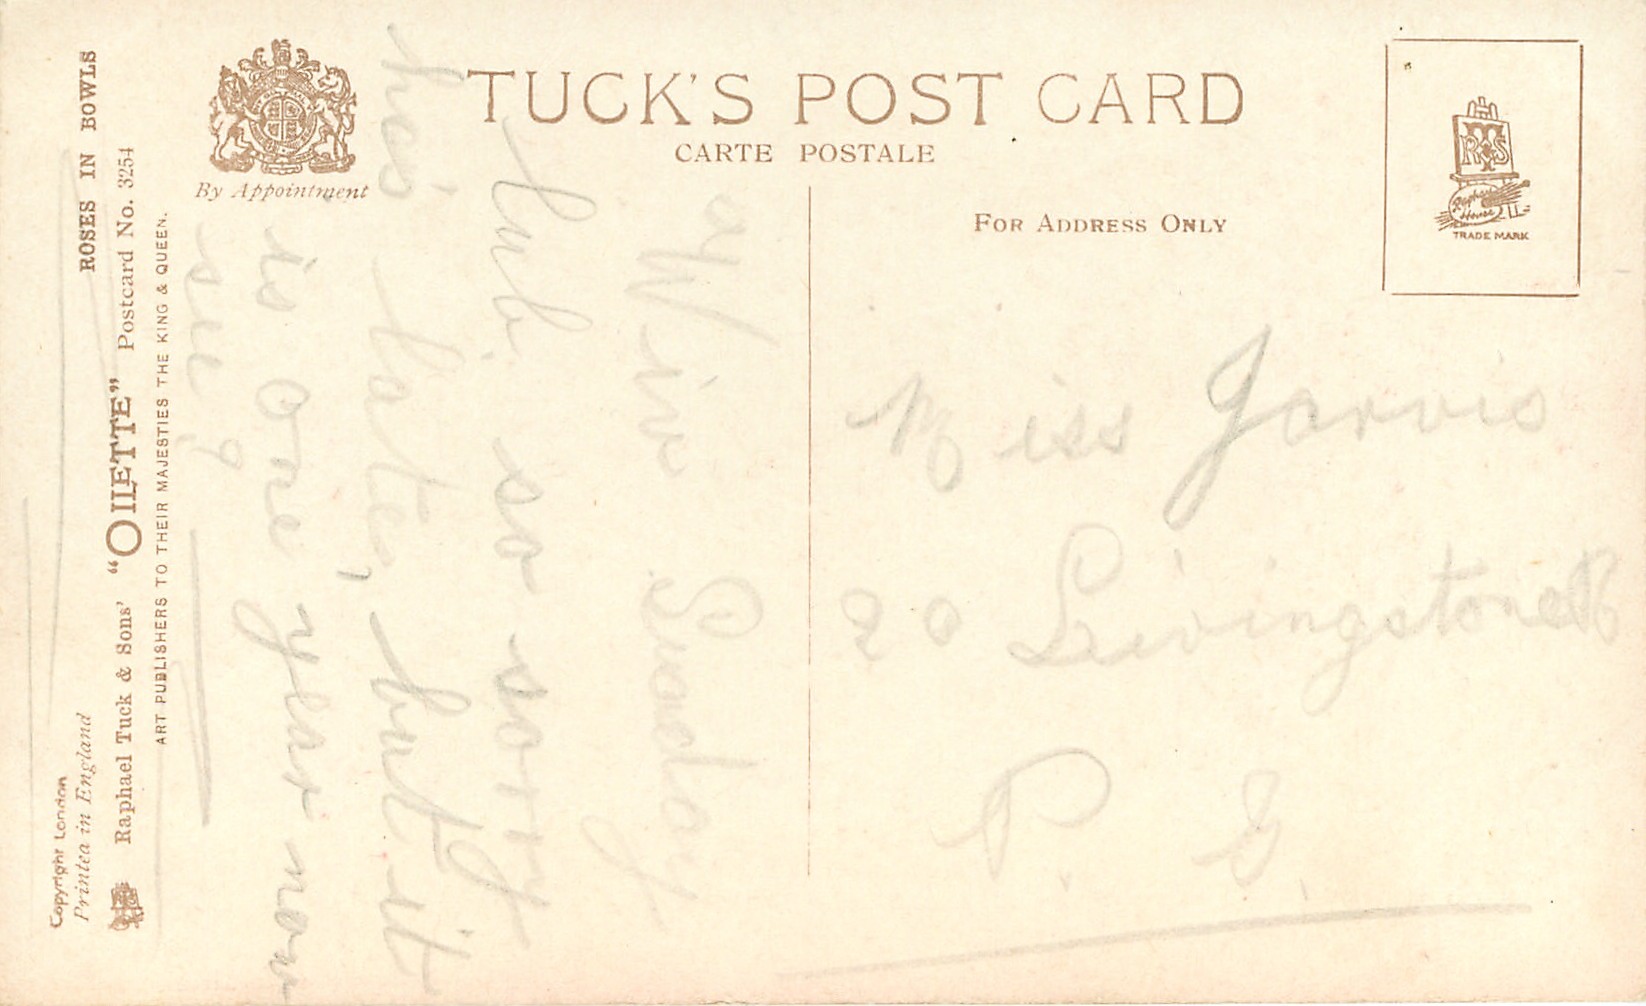 TUCK'S POST CARD
CARTE POSTALE
By Appointment
FOR ADDRESS ONLY
TRADE MARK
Raphael House
ROSES IN BOWLS
Raphael Tuck & Sons' "OILETTE" Postcard No. 3254
ART PUBLISHERS TO THEIR MAJESTIES THE KING & QUEEN.
Copyright London
Printed in England
Sunday
so sorry
late, but it
is one year now
see?
Miss Jarvis
20 Livingstone
P.